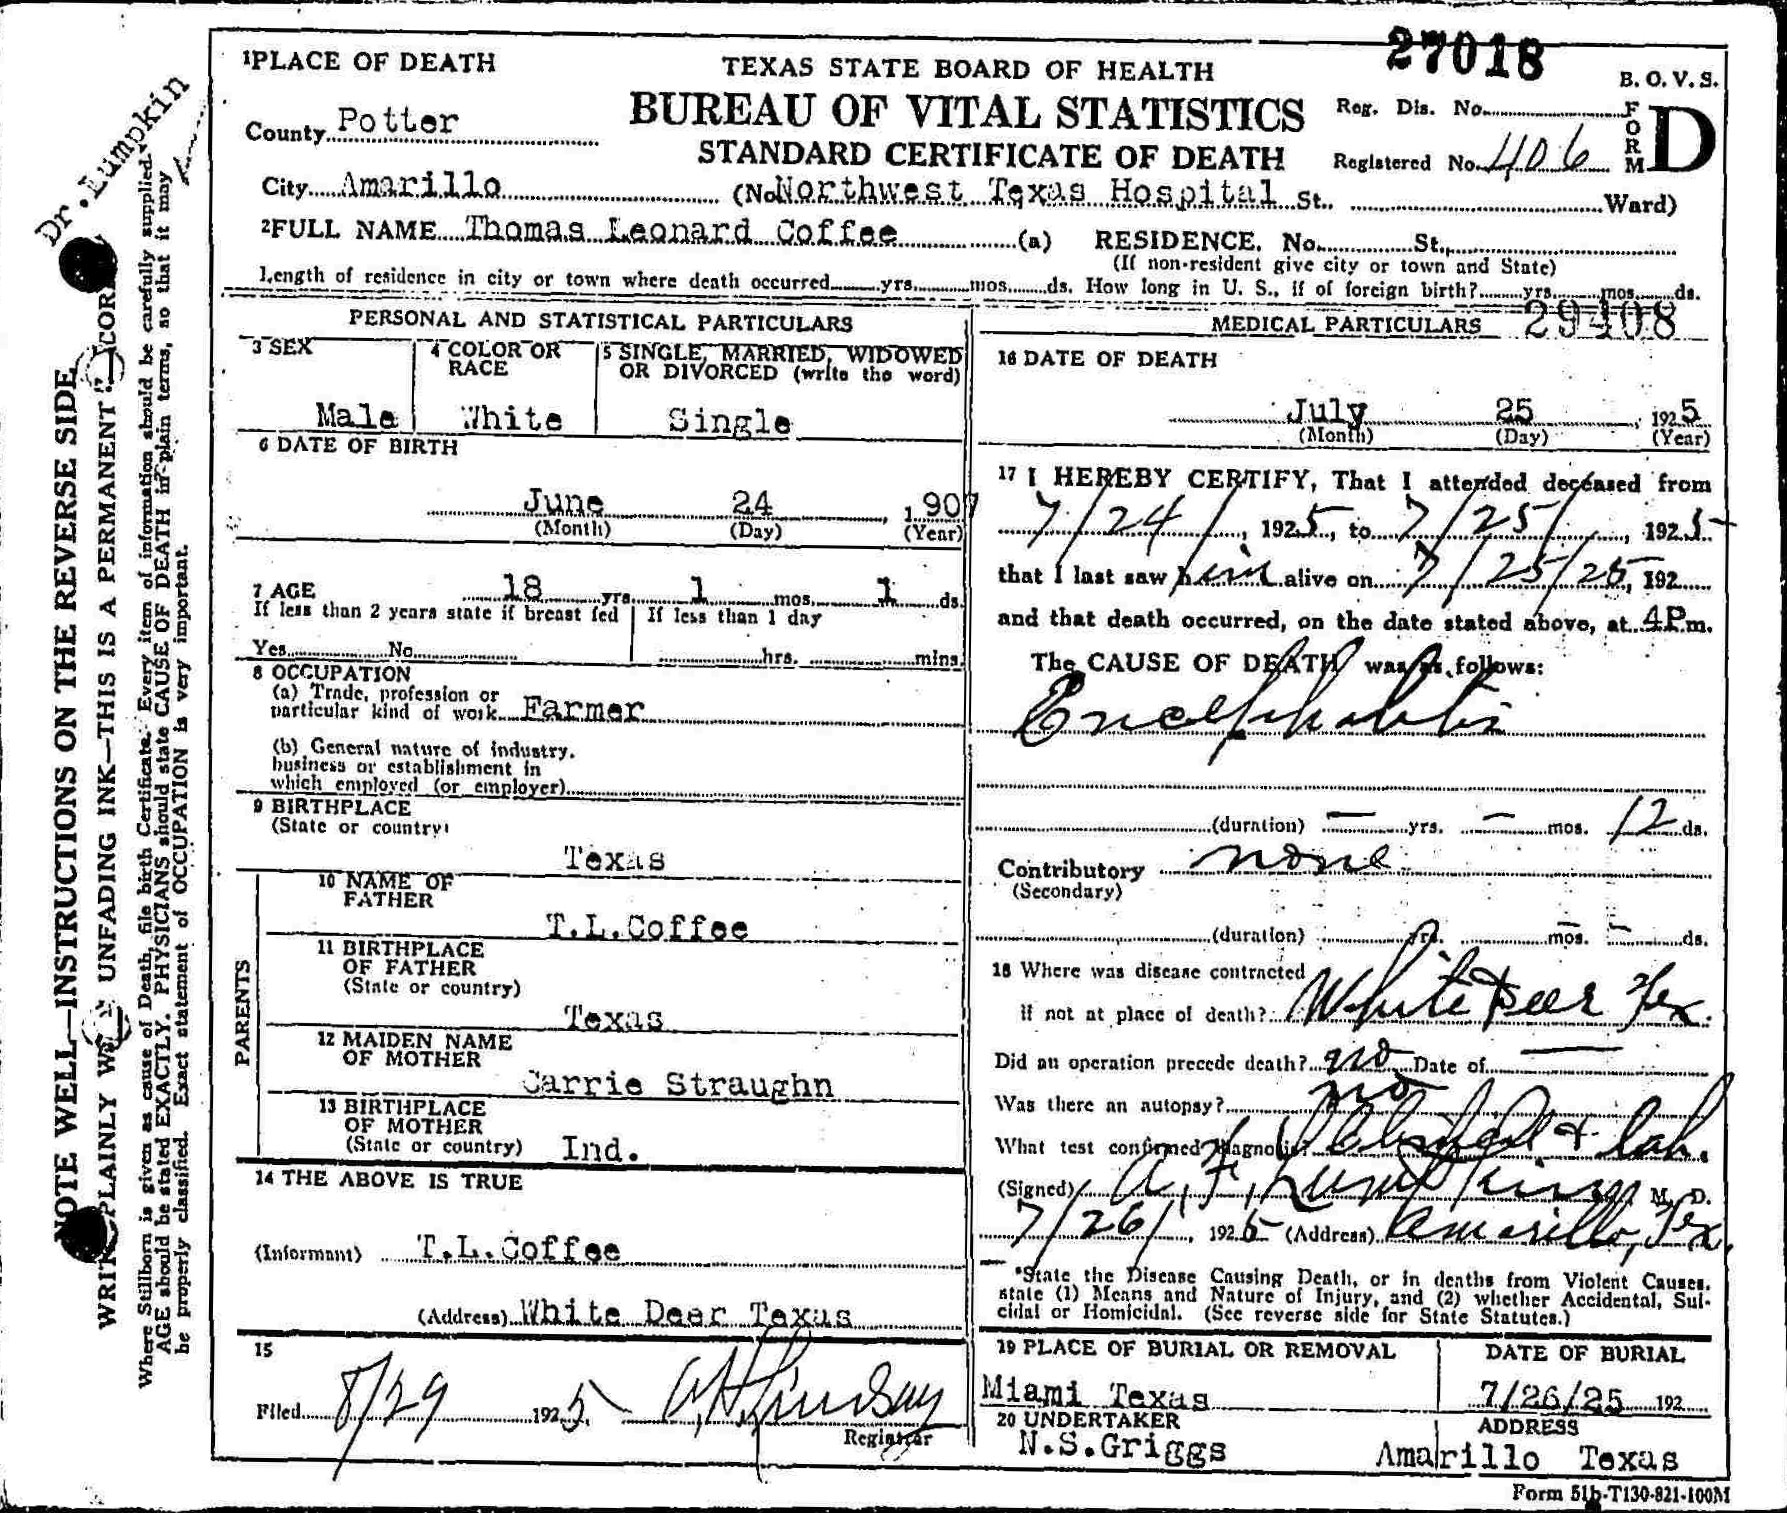 27018
1PLACE OF DEATH
TEXAS STATE BOARD OF HEALTH
B. O. V. S.
BUREAU OF VITAL STATISTICS
Reg. Dis. No.
FORM D
County Potter
STANDARD CERTIFICATE OF DEATH
Registered No. 406
City Amarillo (No Northwest Texas Hospital St. Ward)
2FULL NAME Thomas Leonard Coffee (a) RESIDENCE. No. St.
(If non-resident give city or town and State)
Length of residence in city or town where death occurred yrs. mos. ds. How long in U. S., if of foreign birth? yrs. mos. ds.
PERSONAL AND STATISTICAL PARTICULARS
3 SEX
4 COLOR OR RACE
5 SINGLE, MARRIED, WIDOWED
OR DIVORCED (write the word)
Male White Single
6 DATE OF BIRTH
June 24, 1907
(Month) (Day) (Year)
7 AGE 18 yrs. 1 mos. 1 ds.
If less than 2 years state if breast fed
If less than 1 day
Yes No
hrs. mins.
8 OCCUPATION
(a) Trade, profession or
particular kind of work Farmer
(b) General nature of industry.
business or establishment in
which employed (or employer)
9 BIRTHPLACE
(State or country)
Texas
PARENTS
10 NAME OF
FATHER
T.L.Coffee
11 BIRTHPLACE
OF FATHER
(State or country)
Texas
12 MAIDEN NAME
OF MOTHER
Carrie Straughn
13 BIRTHPLACE
OF MOTHER
(State or country) Ind.
14 THE ABOVE IS TRUE
(Informant) T.L.Coffee
(Address) White Deer Texas
15
Filed 8/29 1925
Registrar
MEDICAL PARTICULARS 29408
16 DATE OF DEATH
July 25, 1925
(Month) (Day) (Year)
17 I HEREBY CERTIFY, That I attended deceased from
7/24/, 1925, to 7/25/, 1925
that I last saw him alive on 7/25/25, 192
and that death occurred, on the date stated above, at 4P.m.
The CAUSE OF DEATH was as follows:
Encephalitis
(duration) — yrs. — mos. 12 ds.
Contributory none
(Secondary)
(duration) yrs. mos. ds.
18 Where was disease contracted
if not at place of death? White Deer Tex.
Did an operation precede death? no Date of —
Was there an autopsy? no
What test confirmed diagnosis? Clinical & Lab.
(Signed) A. F. Lumpkin M. D.
7/26/, 1925 (Address) Amarillo, Tex.
*State the Disease Causing Death, or in deaths from Violent Causes,
state (1) Means and Nature of Injury, and (2) whether Accidental, Sui-
cidal or Homicidal. (See reverse side for State Statutes.)
19 PLACE OF BURIAL OR REMOVAL
DATE OF BURIAL
Miami Texas 7/26/25 192
20 UNDERTAKER
ADDRESS
N.S.Griggs Amarillo Texas
Form 51b-T130-821-100M
Dr. Lumpkin
NOTE WELL—INSTRUCTIONS ON THE REVERSE SIDE
WRITE PLAINLY UNFADING INK—THIS IS A PERMANENT
Where Stillborn is given as cause of Death, file birth Certificate. Every item of information should be carefully supplied.
AGE should be stated EXACTLY. PHYSICIANS should state CAUSE OF DEATH in plain terms, so that it may
be properly classified. Exact statement of OCCUPATION is very important.